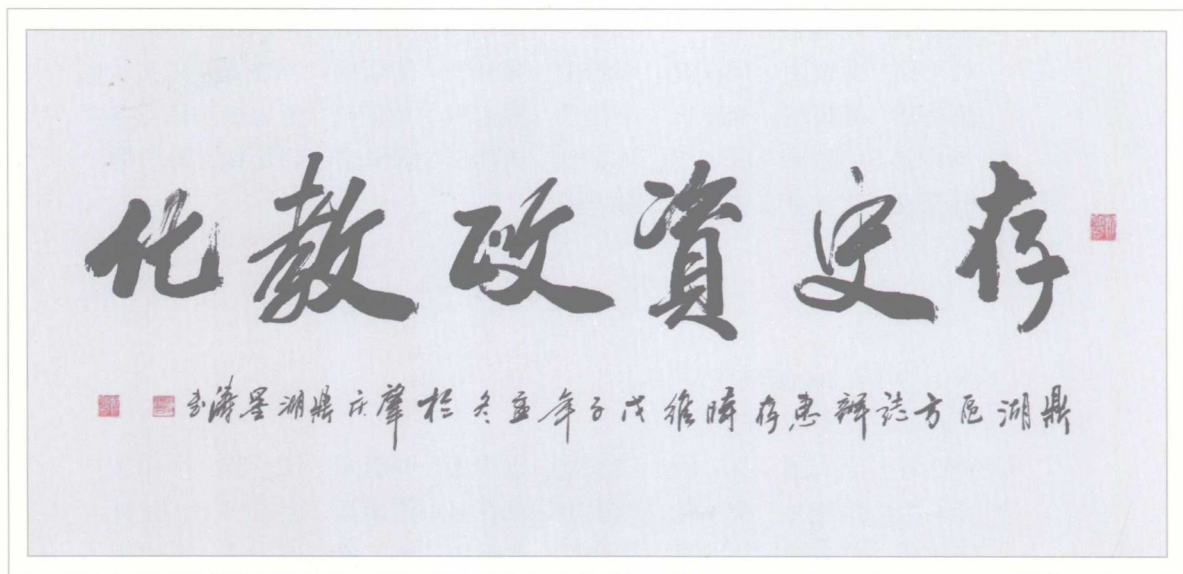 存史資政教化
鼎湖区方誌辦惠存時維戊子年孟冬於肇庆鼎湖墨濤书